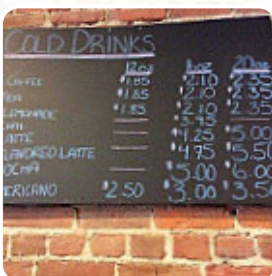 COLD DRINKS
12oz 16oz 20oz
COFFEE $1.85 $2.10 $2.35
TEA $1.85 $2.10 $2.35
LEMONADE $1.85 $2.10 $2.35
HAI
ATTE $4.25 $5.00
LAVORED LATTE $4.75 $5.50
OCHA $5.00 $6.00
ERICANO $2.50 $3.00 $3.5